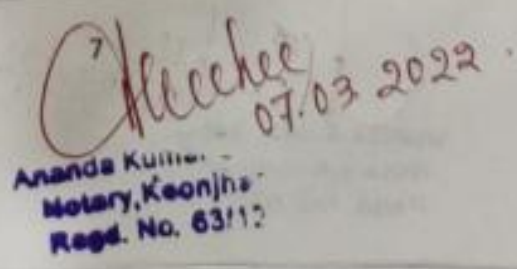 7
07.03 2022
Ananda Kumar
Notary, Keonjhar
Regd. No. 63/12